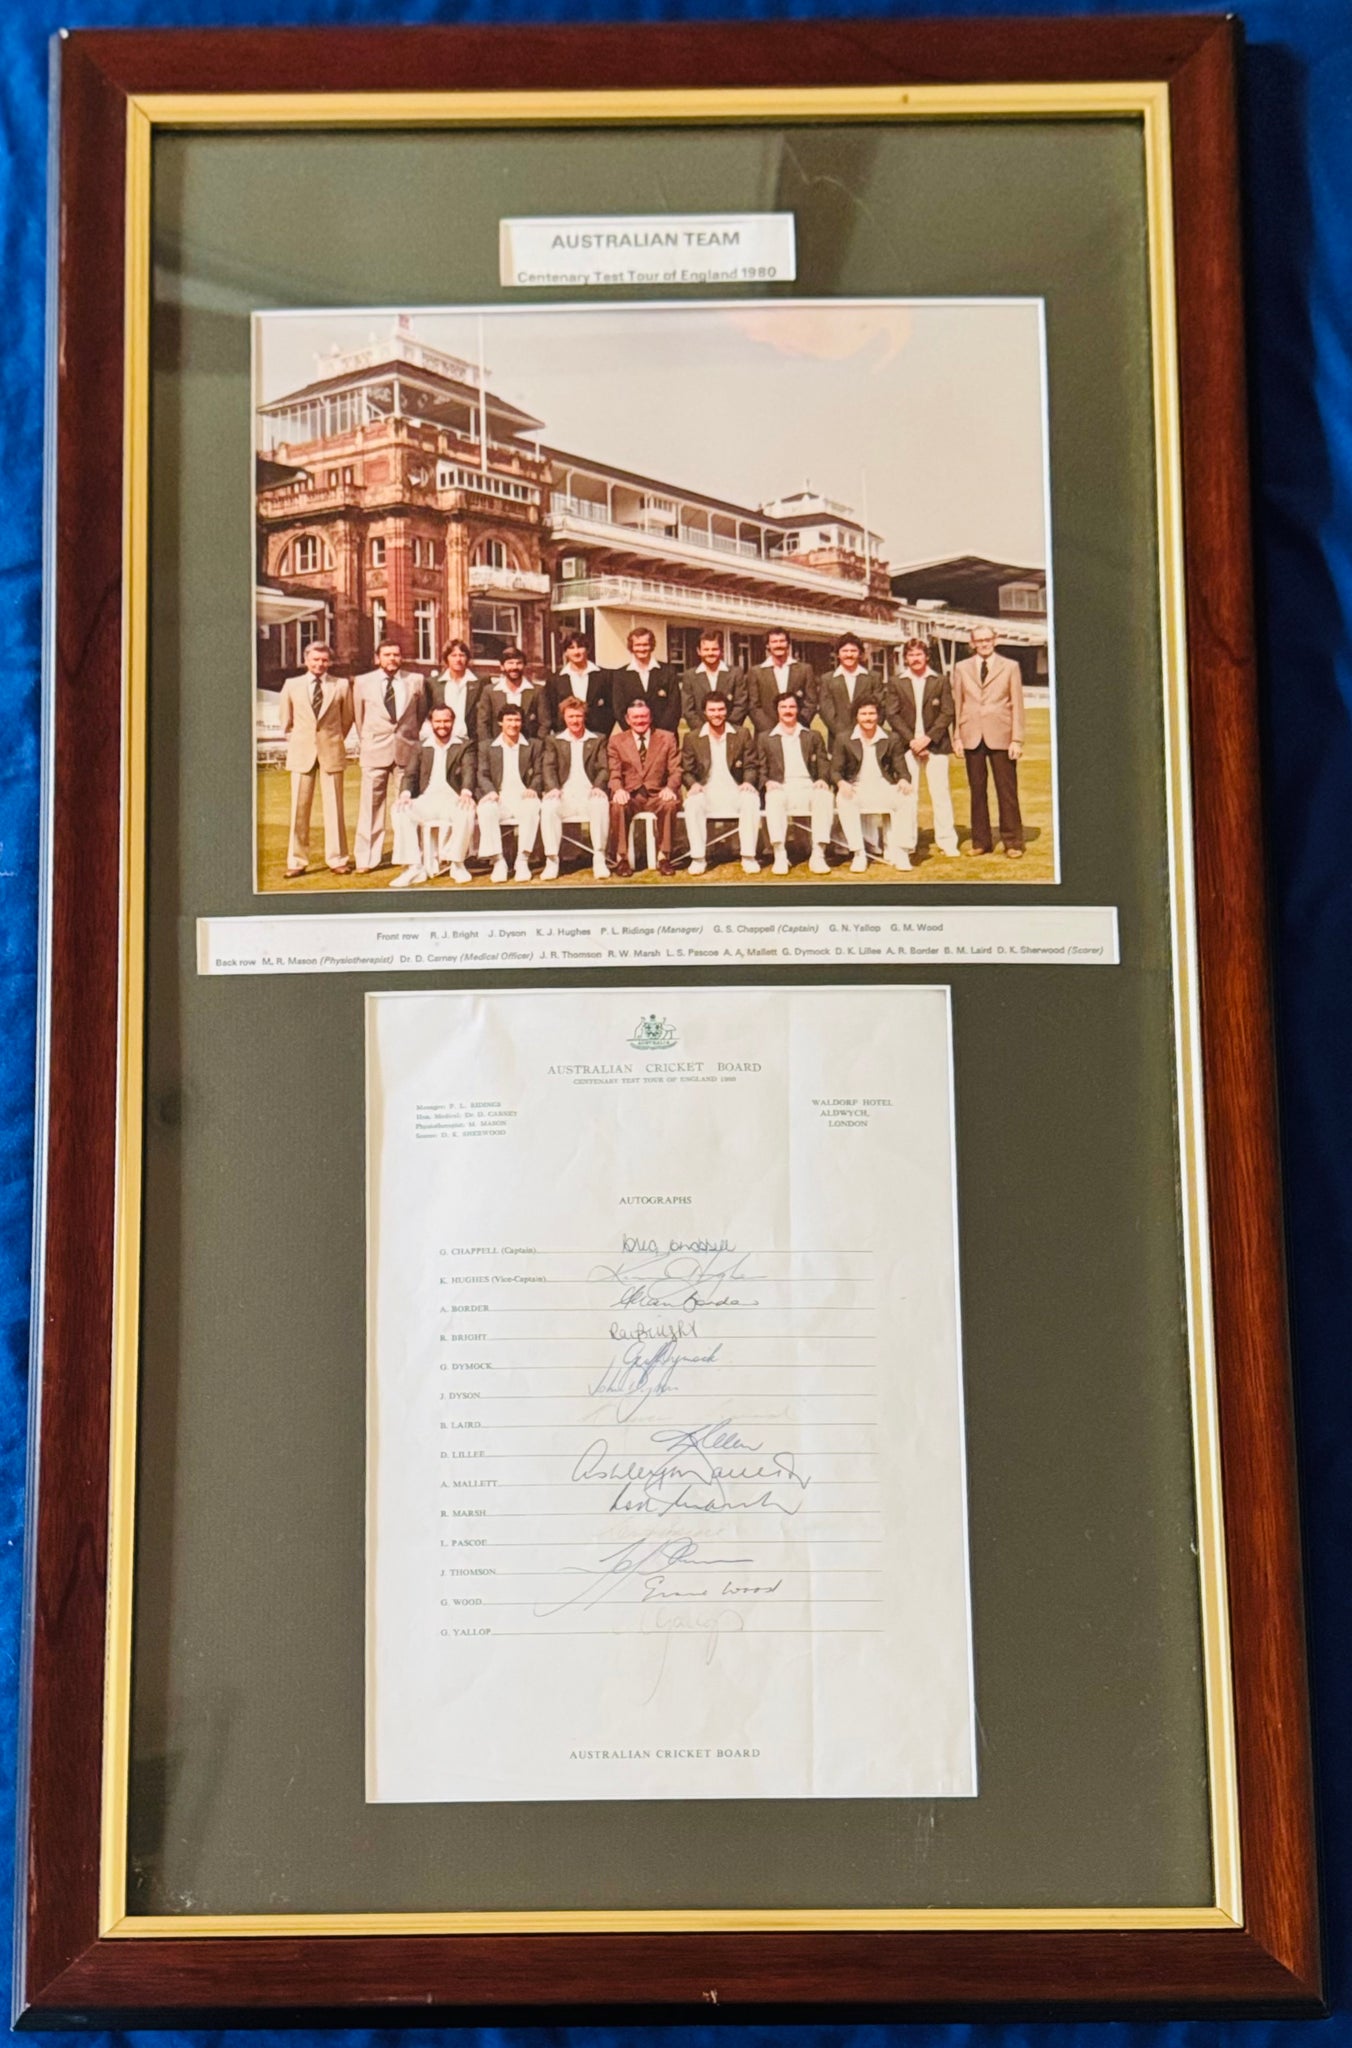 AUSTRALIAN TEAM
Centenary Test Tour of England 1980
Front row R. J. Bright J. Dyson K. J. Hughes P. L. Ridings (Manager) G. S. Chappell (Captain) G. N. Yallop G. M. Wood
Back row M. R. Mason (Physiotherapist) Dr. D. Carney (Medical Officer) J. R. Thomson R. W. Marsh L. S. Pascoe A. A. Mallett G. Dymock D. K. Lillee A. R. Border B. M. Laird D. K. Sherwood (Scorer)
AUSTRALIA
AUSTRALIAN CRICKET BOARD
CENTENARY TEST TOUR OF ENGLAND 1980
Manager: P. L. RIDINGS
Hon. Medical: Dr. D. CARNEY
Physiotherapist: M. MASON
Scorer: D. K. SHERWOOD
WALDORF HOTEL
ALDWYCH,
LONDON
AUTOGRAPHS
G. CHAPPELL (Captain) Greg Chappell
K. HUGHES (Vice-Captain) Kim Hughes
A. BORDER Allan Border
R. BRIGHT Ray Bright
G. DYMOCK Geoff Dymock
J. DYSON John Dyson
B. LAIRD
D. LILLEE D Lillee
A. MALLETT Ashley Mallett
R. MARSH Rod Marsh
L. PASCOE
J. THOMSON
G. WOOD Graeme Wood
G. YALLOP G Yallop
AUSTRALIAN CRICKET BOARD